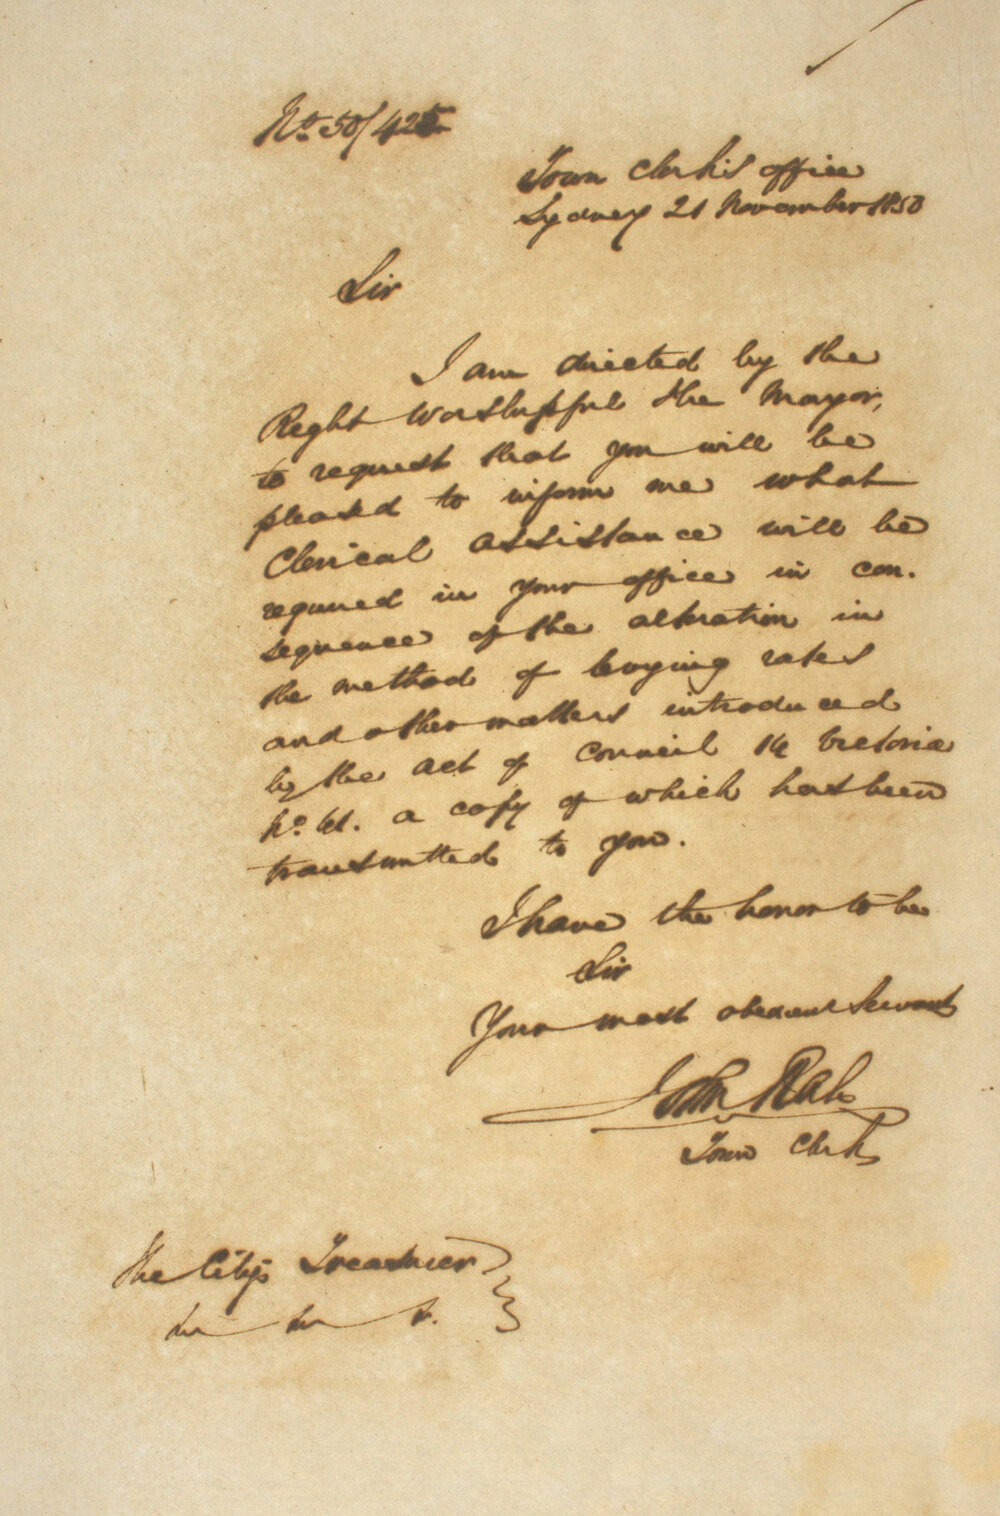 No. 50/425
Town Clerk's Office
Sydney 21 November 1850
Sir
I am directed by the
Right Worshipful the Mayor,
to request that you will be
pleased to inform me what
Clerical Assistance will be
required in your office in con.
sequence of the alteration in
the method of levying rates
and other matters introduced
by the Act of Council 14 Victoria
No. 41. a copy of which has been
transmitted to you.
I have the honor to be
Sir
Your most obedient Servant
John Rae
Town Clerk
The City Treasurer